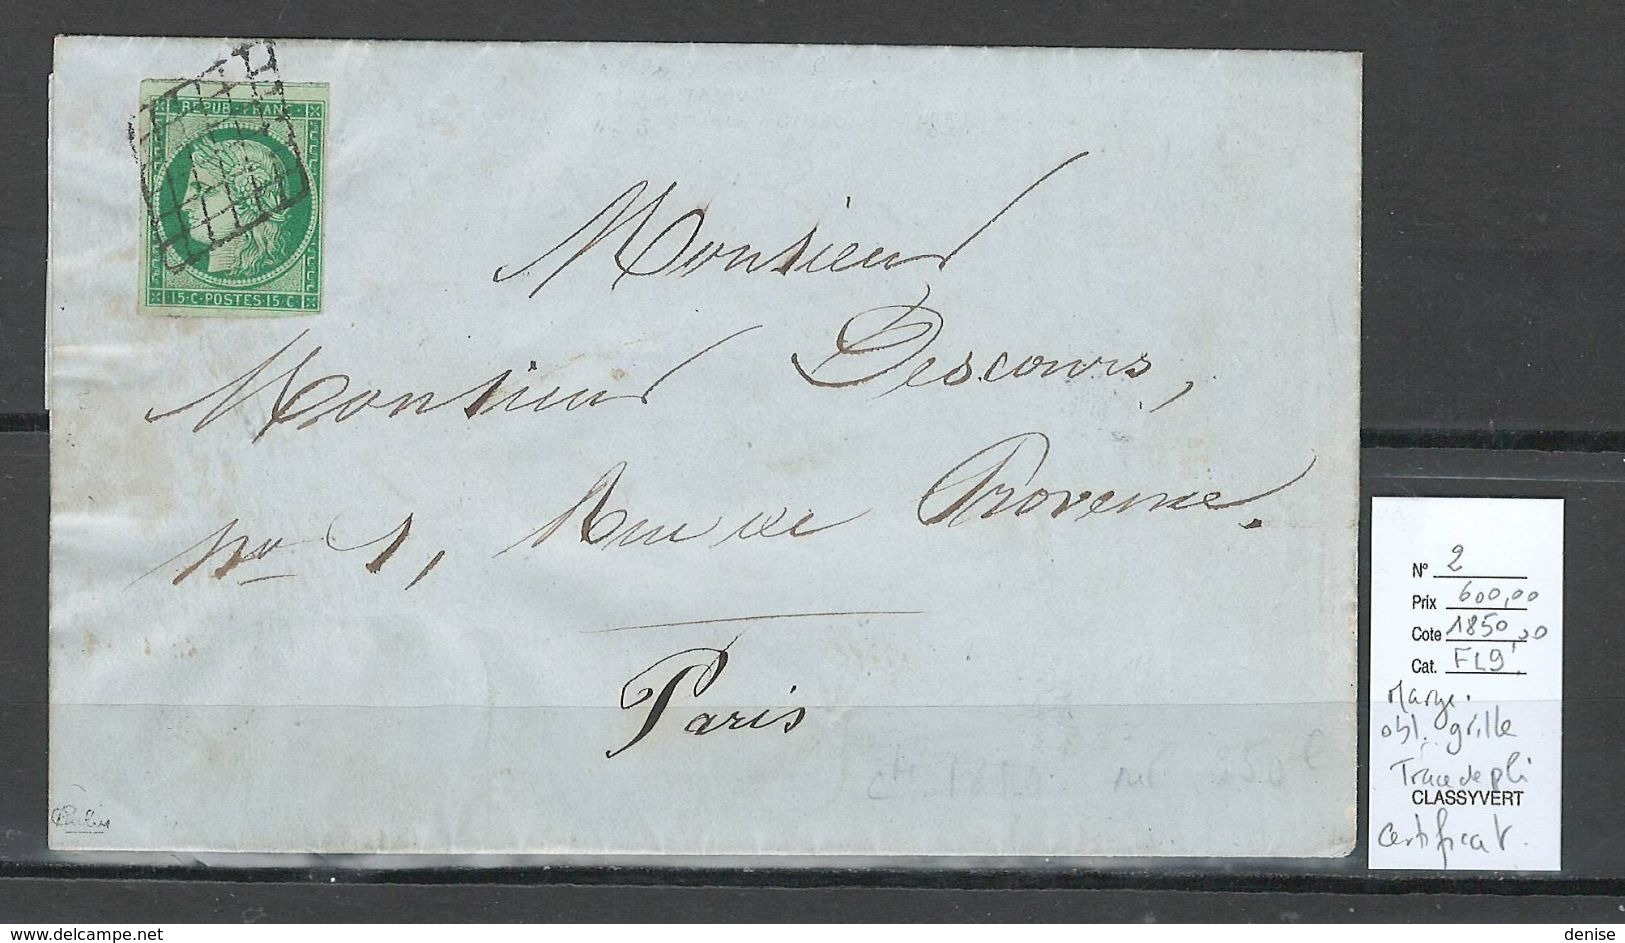 REPUB·FRANC
15·C·POSTES·15·C
Monsieur
Monsieur Descours,
No 1, Rue de Provence.
Paris
N° 2
Prix 600,00
Cote 1850,00
Cat. FL9
Marge.
obl. grille
Trace de pli
CLASSYVERT
certificat.
www.delcampe.net
denise